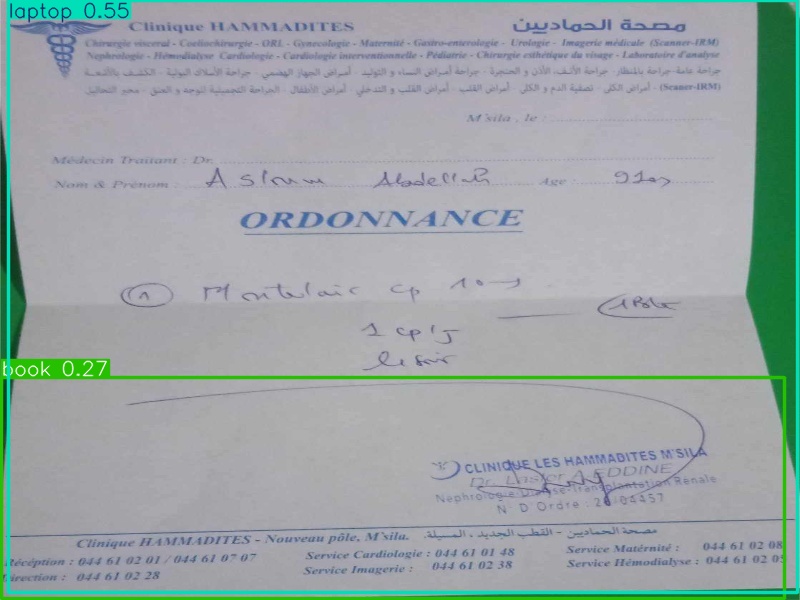 laptop 0.55
Clinique HAMMADITES مصحة الحماديين
Chirurgie viscéral - Coeliochirurgie - ORL - Gynecologie - Maternité - Gastro-enterologie - Urologie - Imagerie médicale (Scanner-IRM)
Nephrologie - Hémodialyse Cardiologie - Cardiologie interventionnelle - Pédiatrie - Chirurgie esthétique du visage - Laboratoire d'analyse
جراحة عامة-جراحة بالمنظار - جراحة الأنف، الأذن و الحنجرة - جراحة أمراض النساء و التوليد - أمراض الجهاز الهضمي - جراحة الأسلاك البولية - الكشف بالأشعة
(Scaner-IRM) - أمراض الكلى - تصفية الدم و الكلى - أمراض القلب - أمراض القلب و التدخلي - أمراض الأطفال - الجراحة التجميلية للوجه و العنق - مخبر التحاليل
M'sila , le :
Médecin Traitant : Dr.
Nom & Prénom : Abdellah Age :
ORDONNANCE
1 cp/J
le soir
book 0.27
CLINIQUE LES HAMMADITES M'SILA
Dr. EDDINE
Nephrologie-Dialyse-Transplantation Rénale
N° D Ordre : 28/04457
Clinique HAMMADITES - Nouveau pôle, M'sila. مصحة الحماديين - القطب الجديد ، المسيلة.
Réception : 044 61 02 01 / 044 61 07 07 Service Cardiologie : 044 61 01 48 Service Matérnité : 044 61 02 08
Direction : 044 61 02 28 Service Imagerie : 044 61 02 38 Service Hémodialyse : 044 61 02